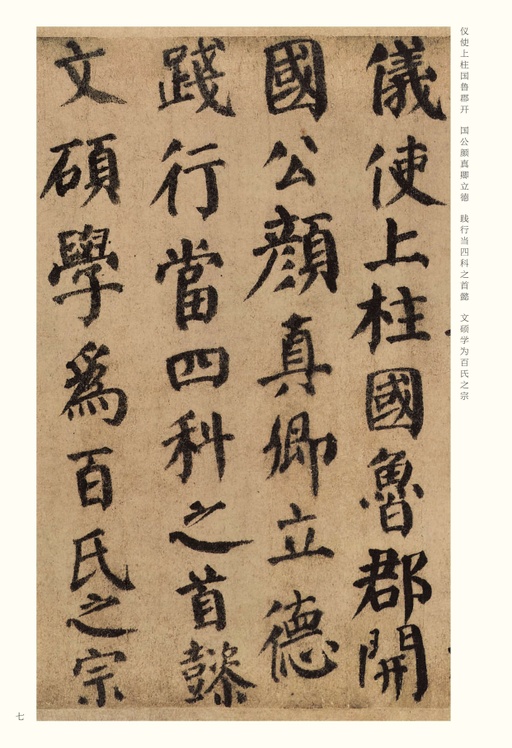 儀使上柱國魯郡開
國公顏真卿立德
踐行當四科之首懿
文碩學爲百氏之宗
仪使上柱国鲁郡开　国公颜真卿立德　践行当四科之首懿　文硕学为百氏之宗
七